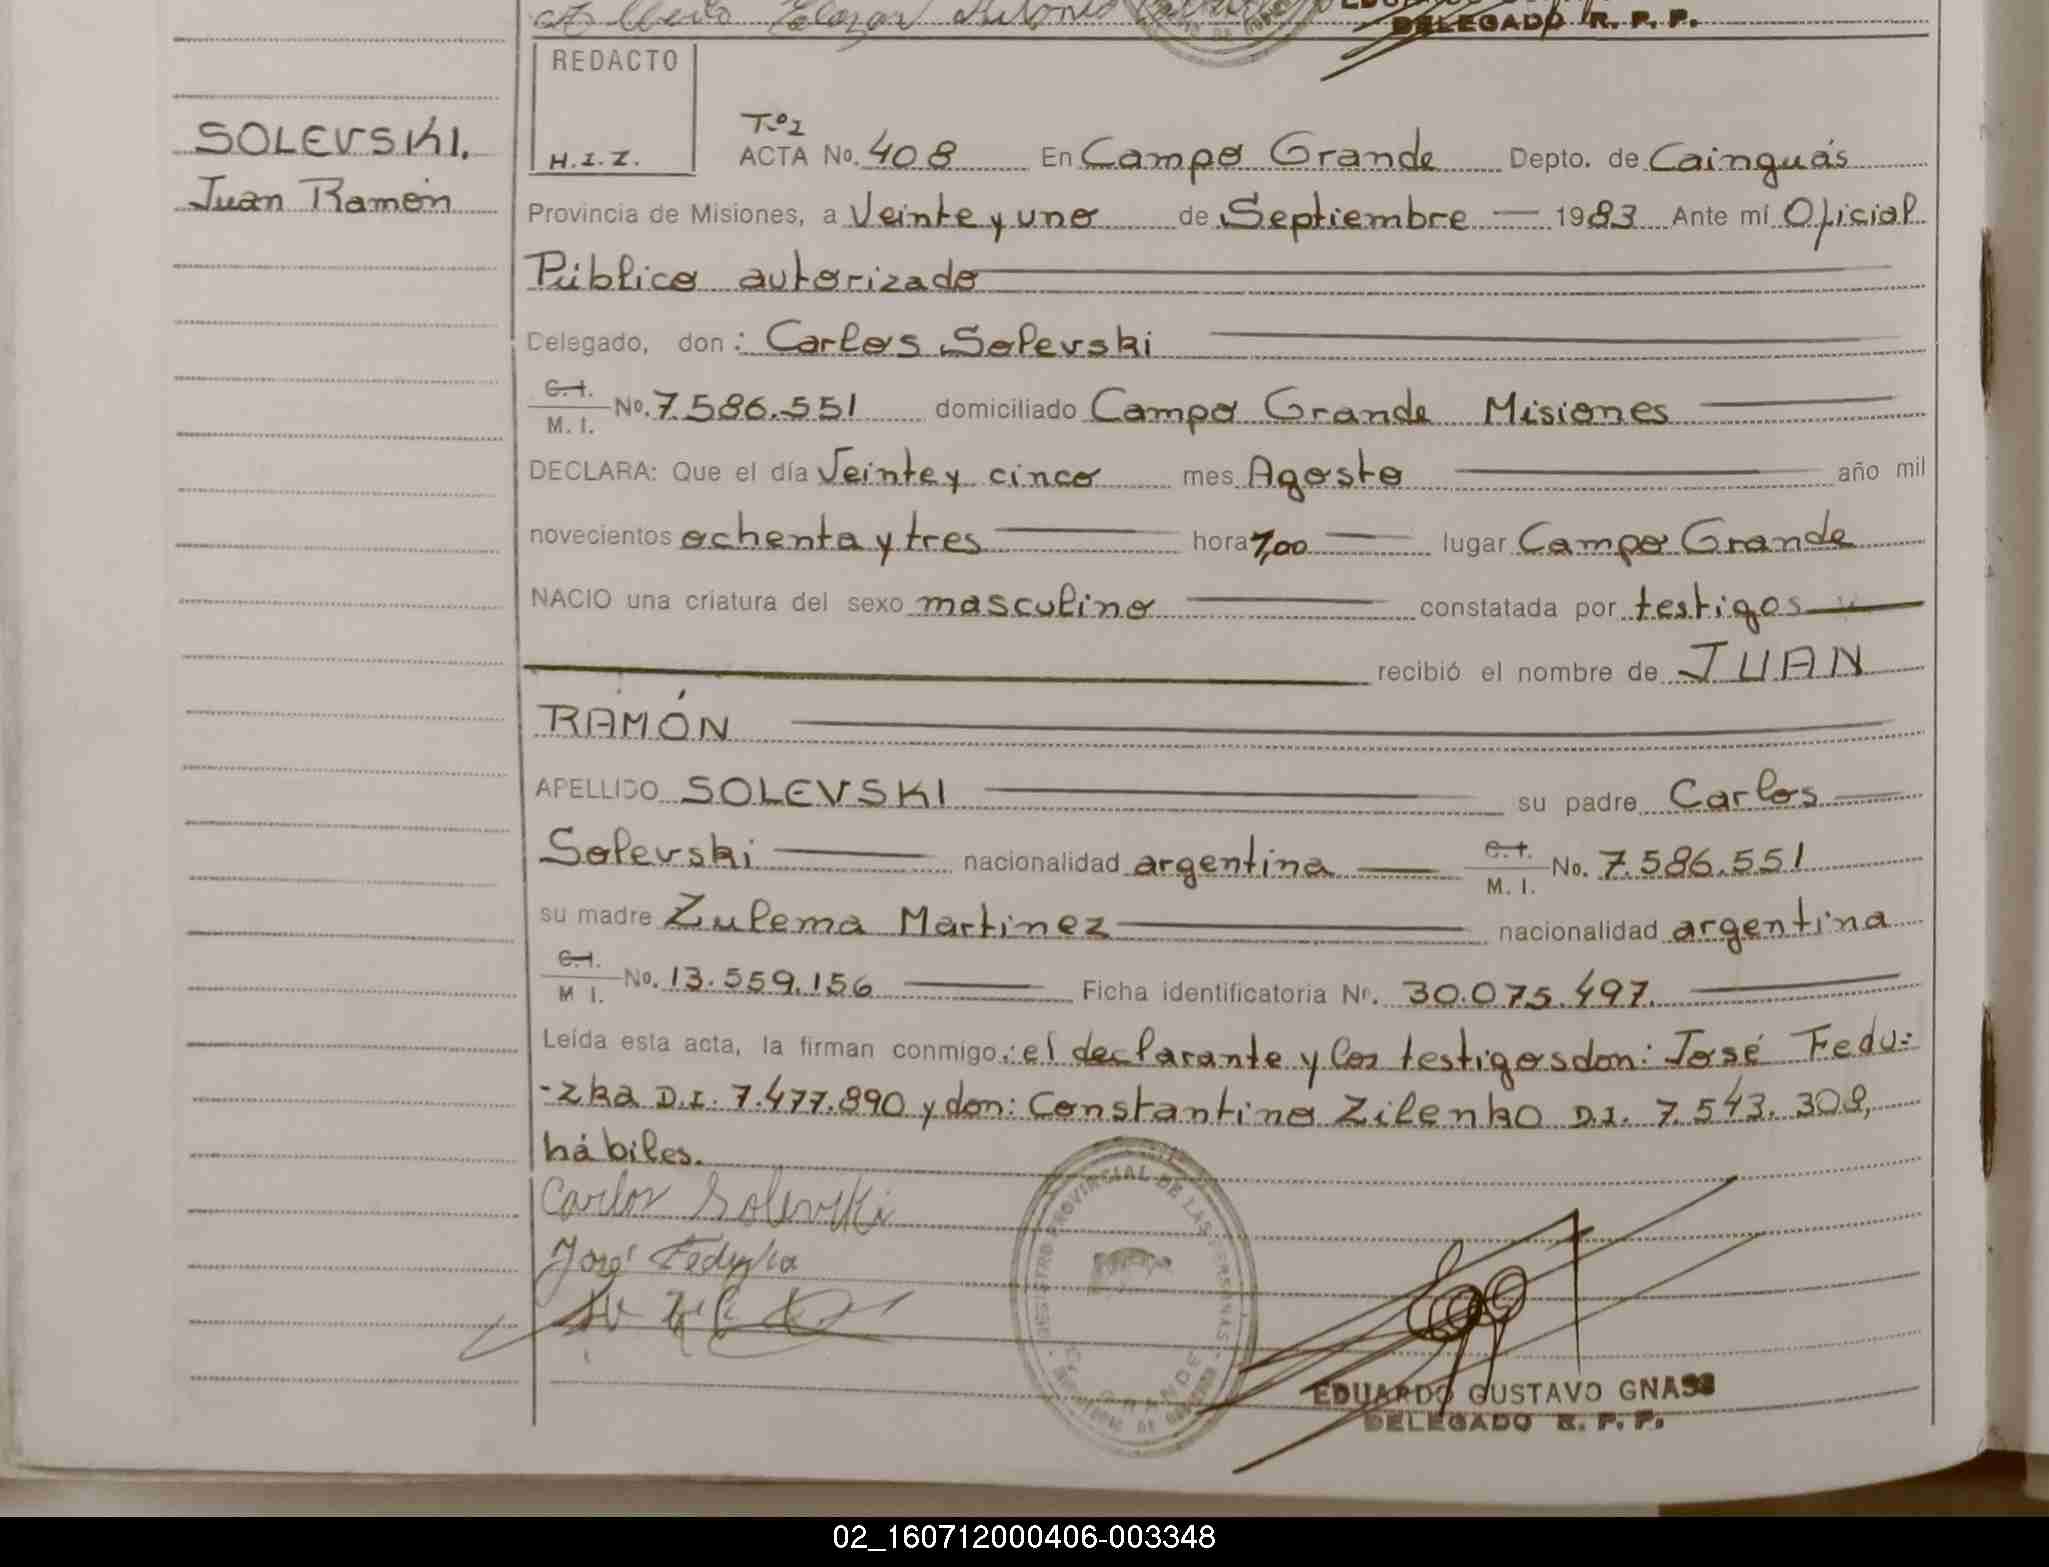 DELEGADO R. P. P.
REDACTO
H.I.Z.
SOLEVSKI.
Juan Ramón
Tº2
ACTA No. 408 En Campo Grande Depto. de Cainguás
Provincia de Misiones, a Veinte y uno de Septiembre — 1983 Ante mí Oficial
Público autorizado
Delegado, don: Carlos Solevski
C.I.
M. I. No. 7.586.551 domiciliado Campo Grande Misiones
DECLARA: Que el día Veinte y cinco mes Agosto año mil
novecientos ochenta y tres hora 7,00 lugar Campo Grande
NACIO una criatura del sexo masculino constatada por testigos
recibió el nombre de JUAN
RAMÓN
APELLIDO SOLEVSKI su padre Carlos
Solevski nacionalidad argentina C.I.
M. I. No. 7.586.551
su madre Zulema Martinez nacionalidad argentina
C.I.
M I. No. 13.559.156 Ficha identificatoria Nº. 30.075.497.
Leída esta acta, la firman conmigo: el declarante y los testigos don: José Fedu=
-zka D.I. 7.477.890 y don: Constantino Zilenko D.I. 7.543.308,
hábiles.
Carlos Solevski
José Feduzka
REGISTRO PROVINCIAL DE LAS PERSONAS
GRANDE
EDUARDO GUSTAVO GNASS
DELEGADO R. P. P.
02_160712000406-003348